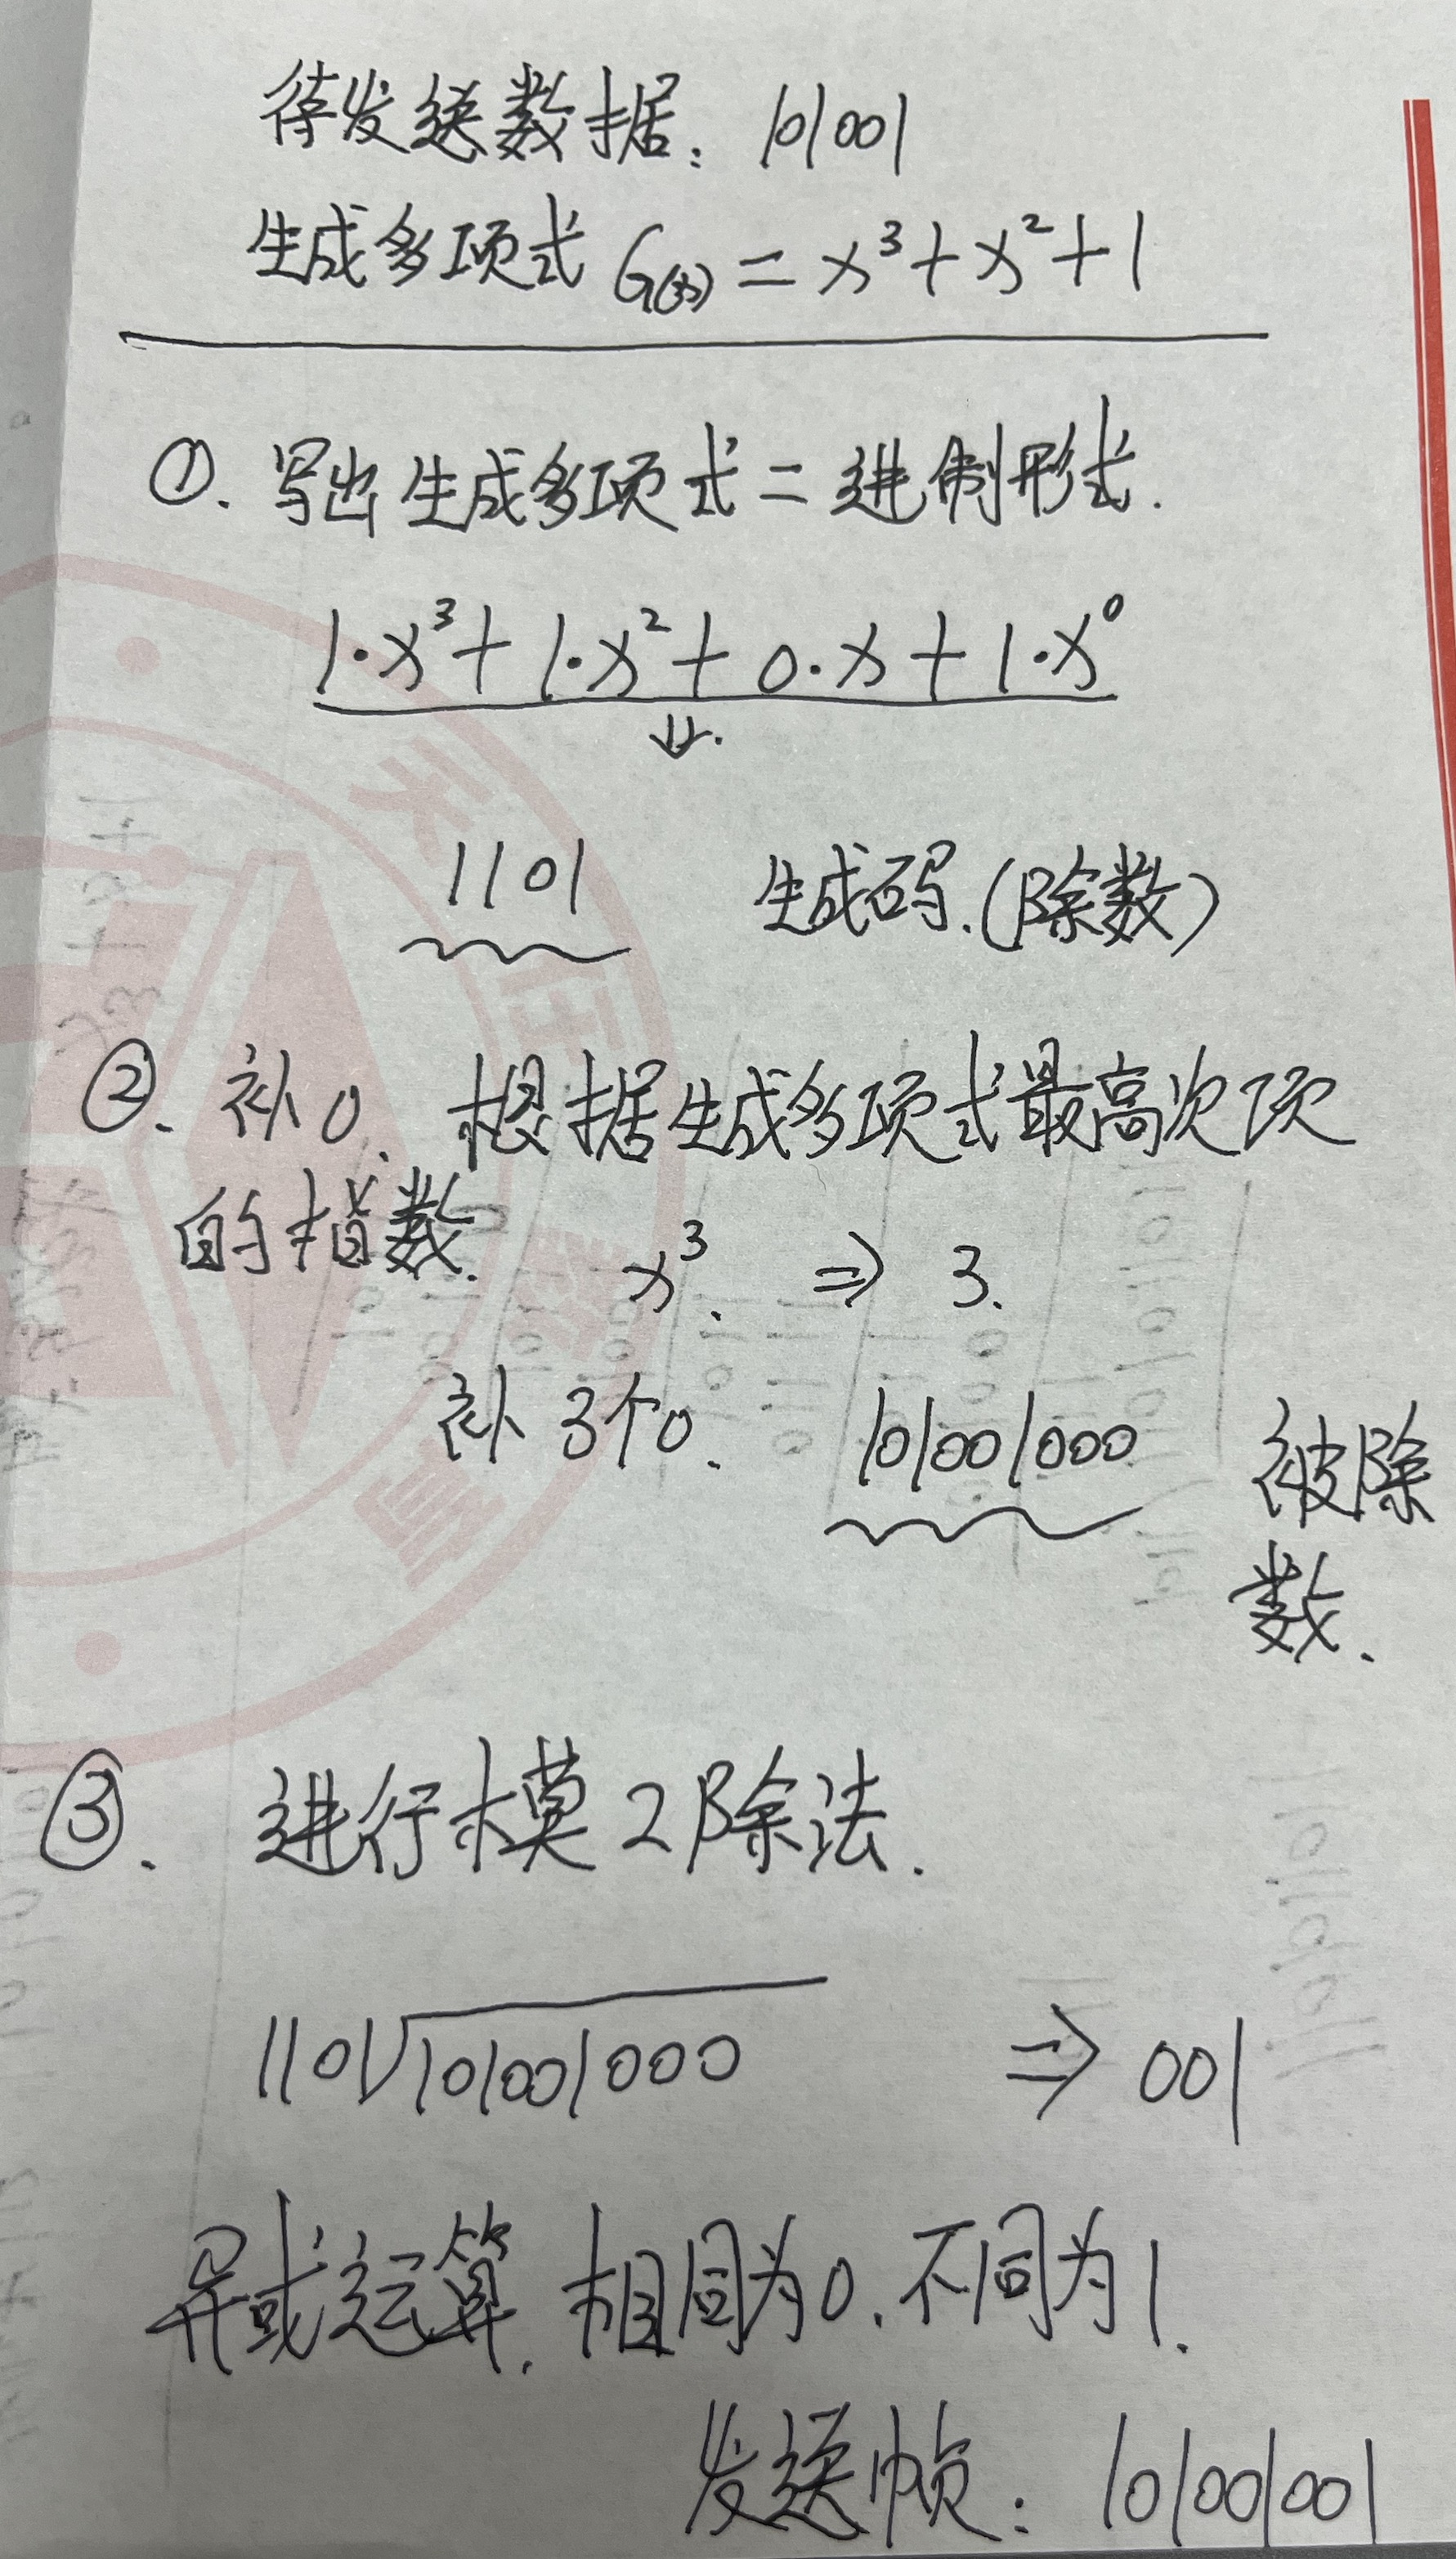 待发送数据: 101001
生成多项式 G(x) = x³+x²+1
①. 写出生成多项式二进制形式.
1·x³+1·x²+0·x+1·x⁰
⇓.
1101 生成码.(除数)
②. 补0. 根据生成多项式最高次项
的指数. x³. ⇒ 3.
补3个0. 101001000 被除
数.
③. 进行模2除法.
1101√101001000 ⇒ 001
异或运算. 相同为0. 不同为1.
发送帧: 101001001